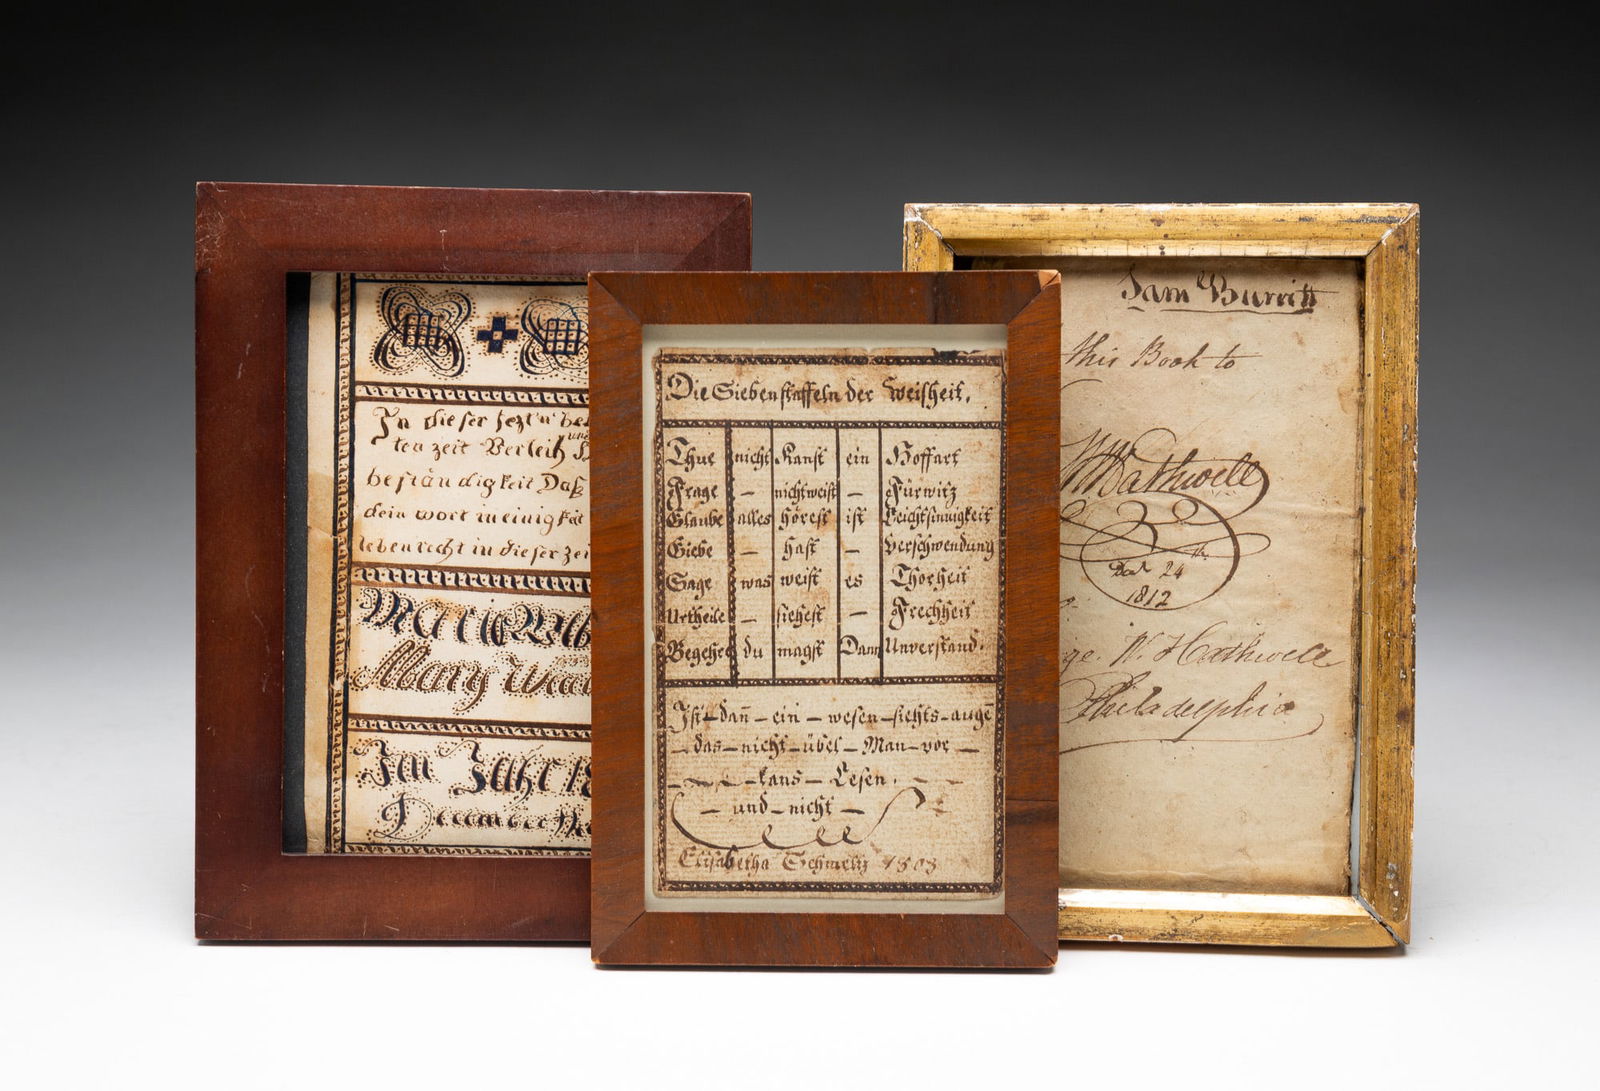 In dieser
ten zeit Verleih
beständigkeit Daß
dein wort in einigkät
leben recht in dieser zei
Mary
Im Jahr 18
December
Die Siebenstaffeln der Weisheit,
Thue nicht Kanst ein Hoffart
Frage – nicht weist – Fürwitz
Glaube alles hörest ist Leichtsinnigkeit
Giebe – hast – Verschwendung
Sage was weist es Thorheit
Urtheile – siehest – Frechheit
Begehre du magst Dann Unverstand.
Ist – dañ – ein – wesen – sichts – auge
– das – nicht – übel – Man – vor –
– kans – Lesen.
– und – nicht –
Elisabetha Schmeltz 1803
Sam Burritt
this Book to
Hathwell
24
1812
ge. W. Hathwell
Philadelphia